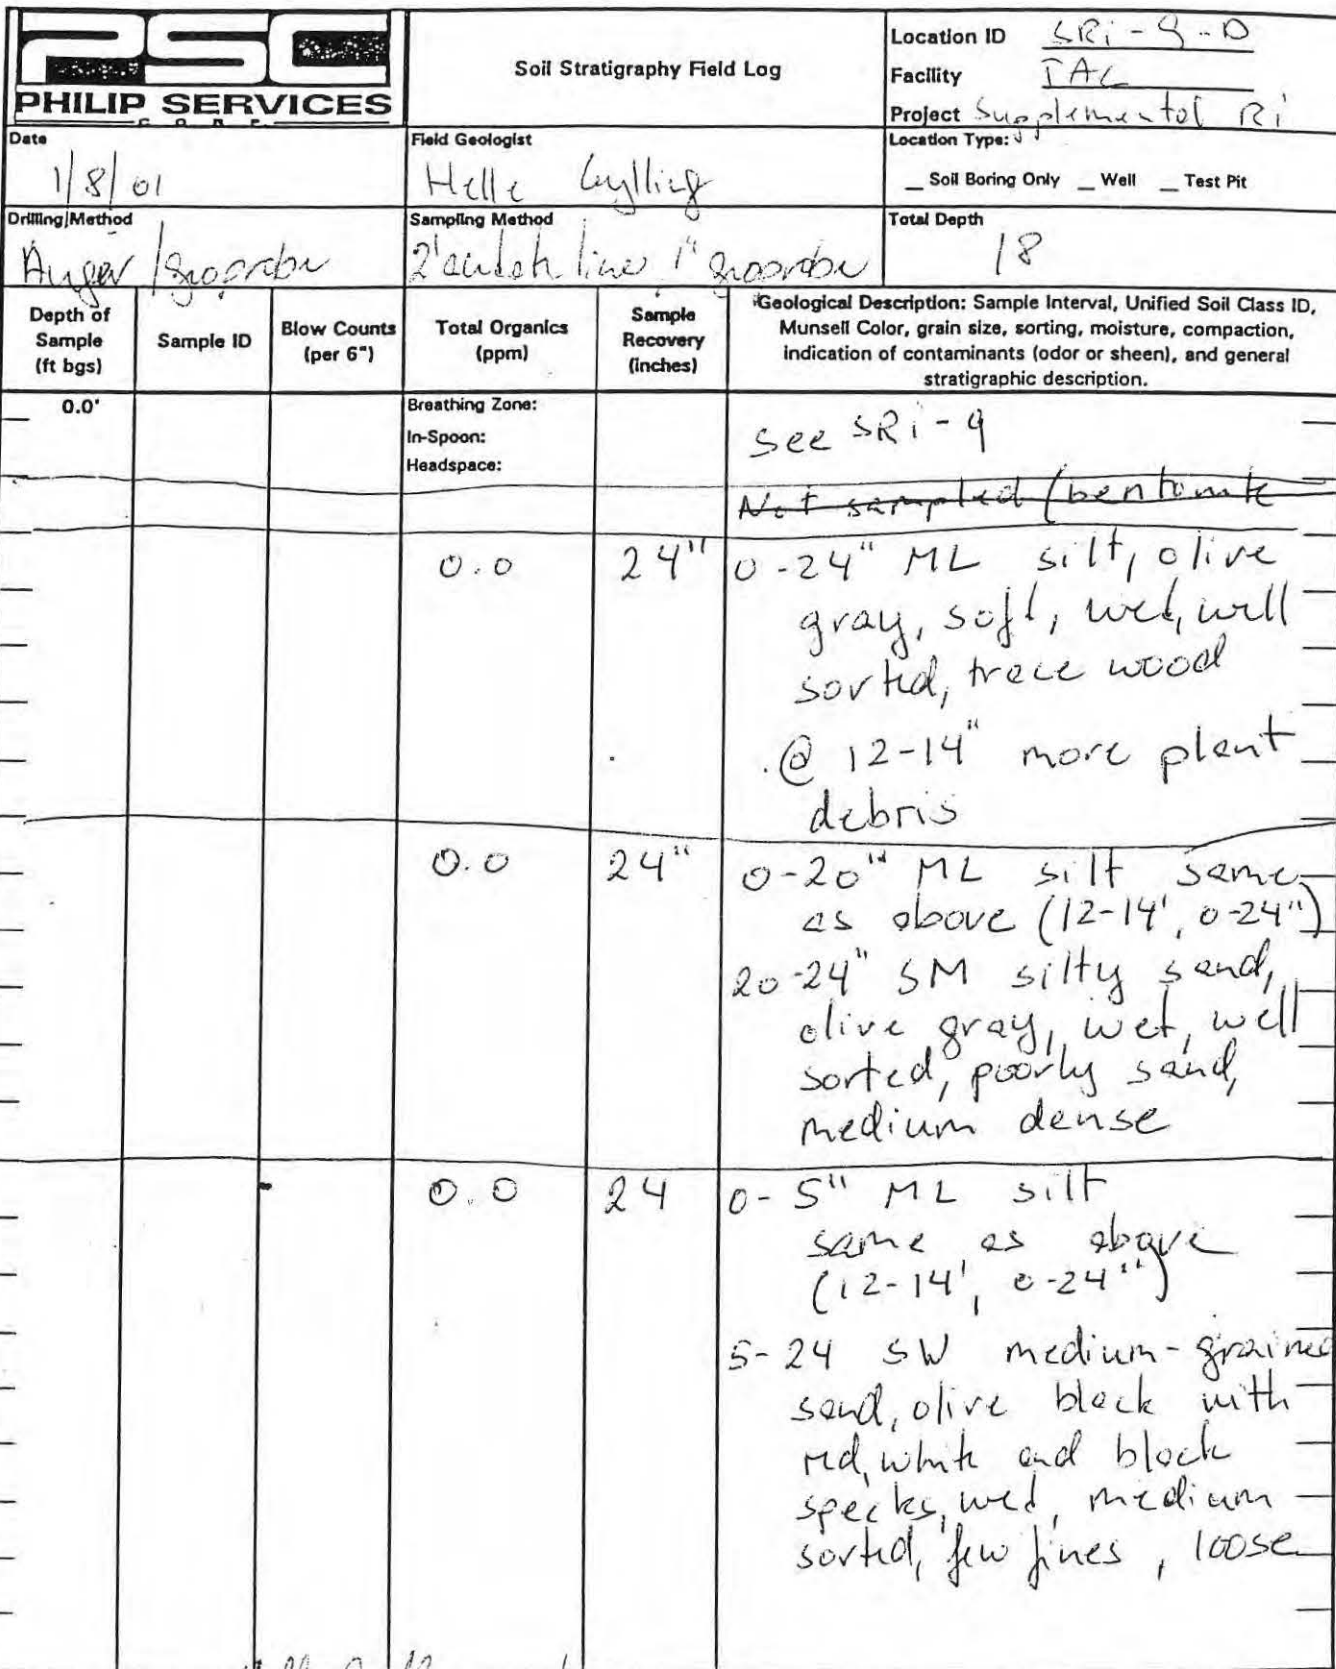 PSC
PHILIP SERVICES
CORP.
Soil Stratigraphy Field Log
Location ID SRi-9-D
Facility TAC
Project Supplemental Ri
Date
1/8/01
Field Geologist
Helle Gylling
Location Type:
_ Soil Boring Only _ Well _ Test Pit
Drilling/Method
Auger / geoprobe
Sampling Method
2' 1" geoprobe
Total Depth
18
Depth of
Sample
(ft bgs)
Sample ID
Blow Counts
(per 6")
Total Organics
(ppm)
Sample
Recovery
(inches)
Geological Description: Sample Interval, Unified Soil Class ID,
Munsell Color, grain size, sorting, moisture, compaction,
indication of contaminants (odor or sheen), and general
stratigraphic description.
0.0'
Breathing Zone:
In-Spoon:
Headspace:
See SRi-9
Not sampled (bentonite
0.0 24" 0-24" ML silt, olive
gray, soft, wet, well
sorted, trace wood
@ 12-14" more plant
debris
0.0 24" 0-20" ML silt same
as above (12-14', 0-24")
20-24" SM silty sand,
olive gray, wet, well
sorted, poorly sand,
medium dense
0.0 24 0-5" ML silt
same as above
(12-14', 0-24")
5-24 SW medium-grained
sand, olive black with
red, white and black
specks, wet, medium
sorted, few fines, loose